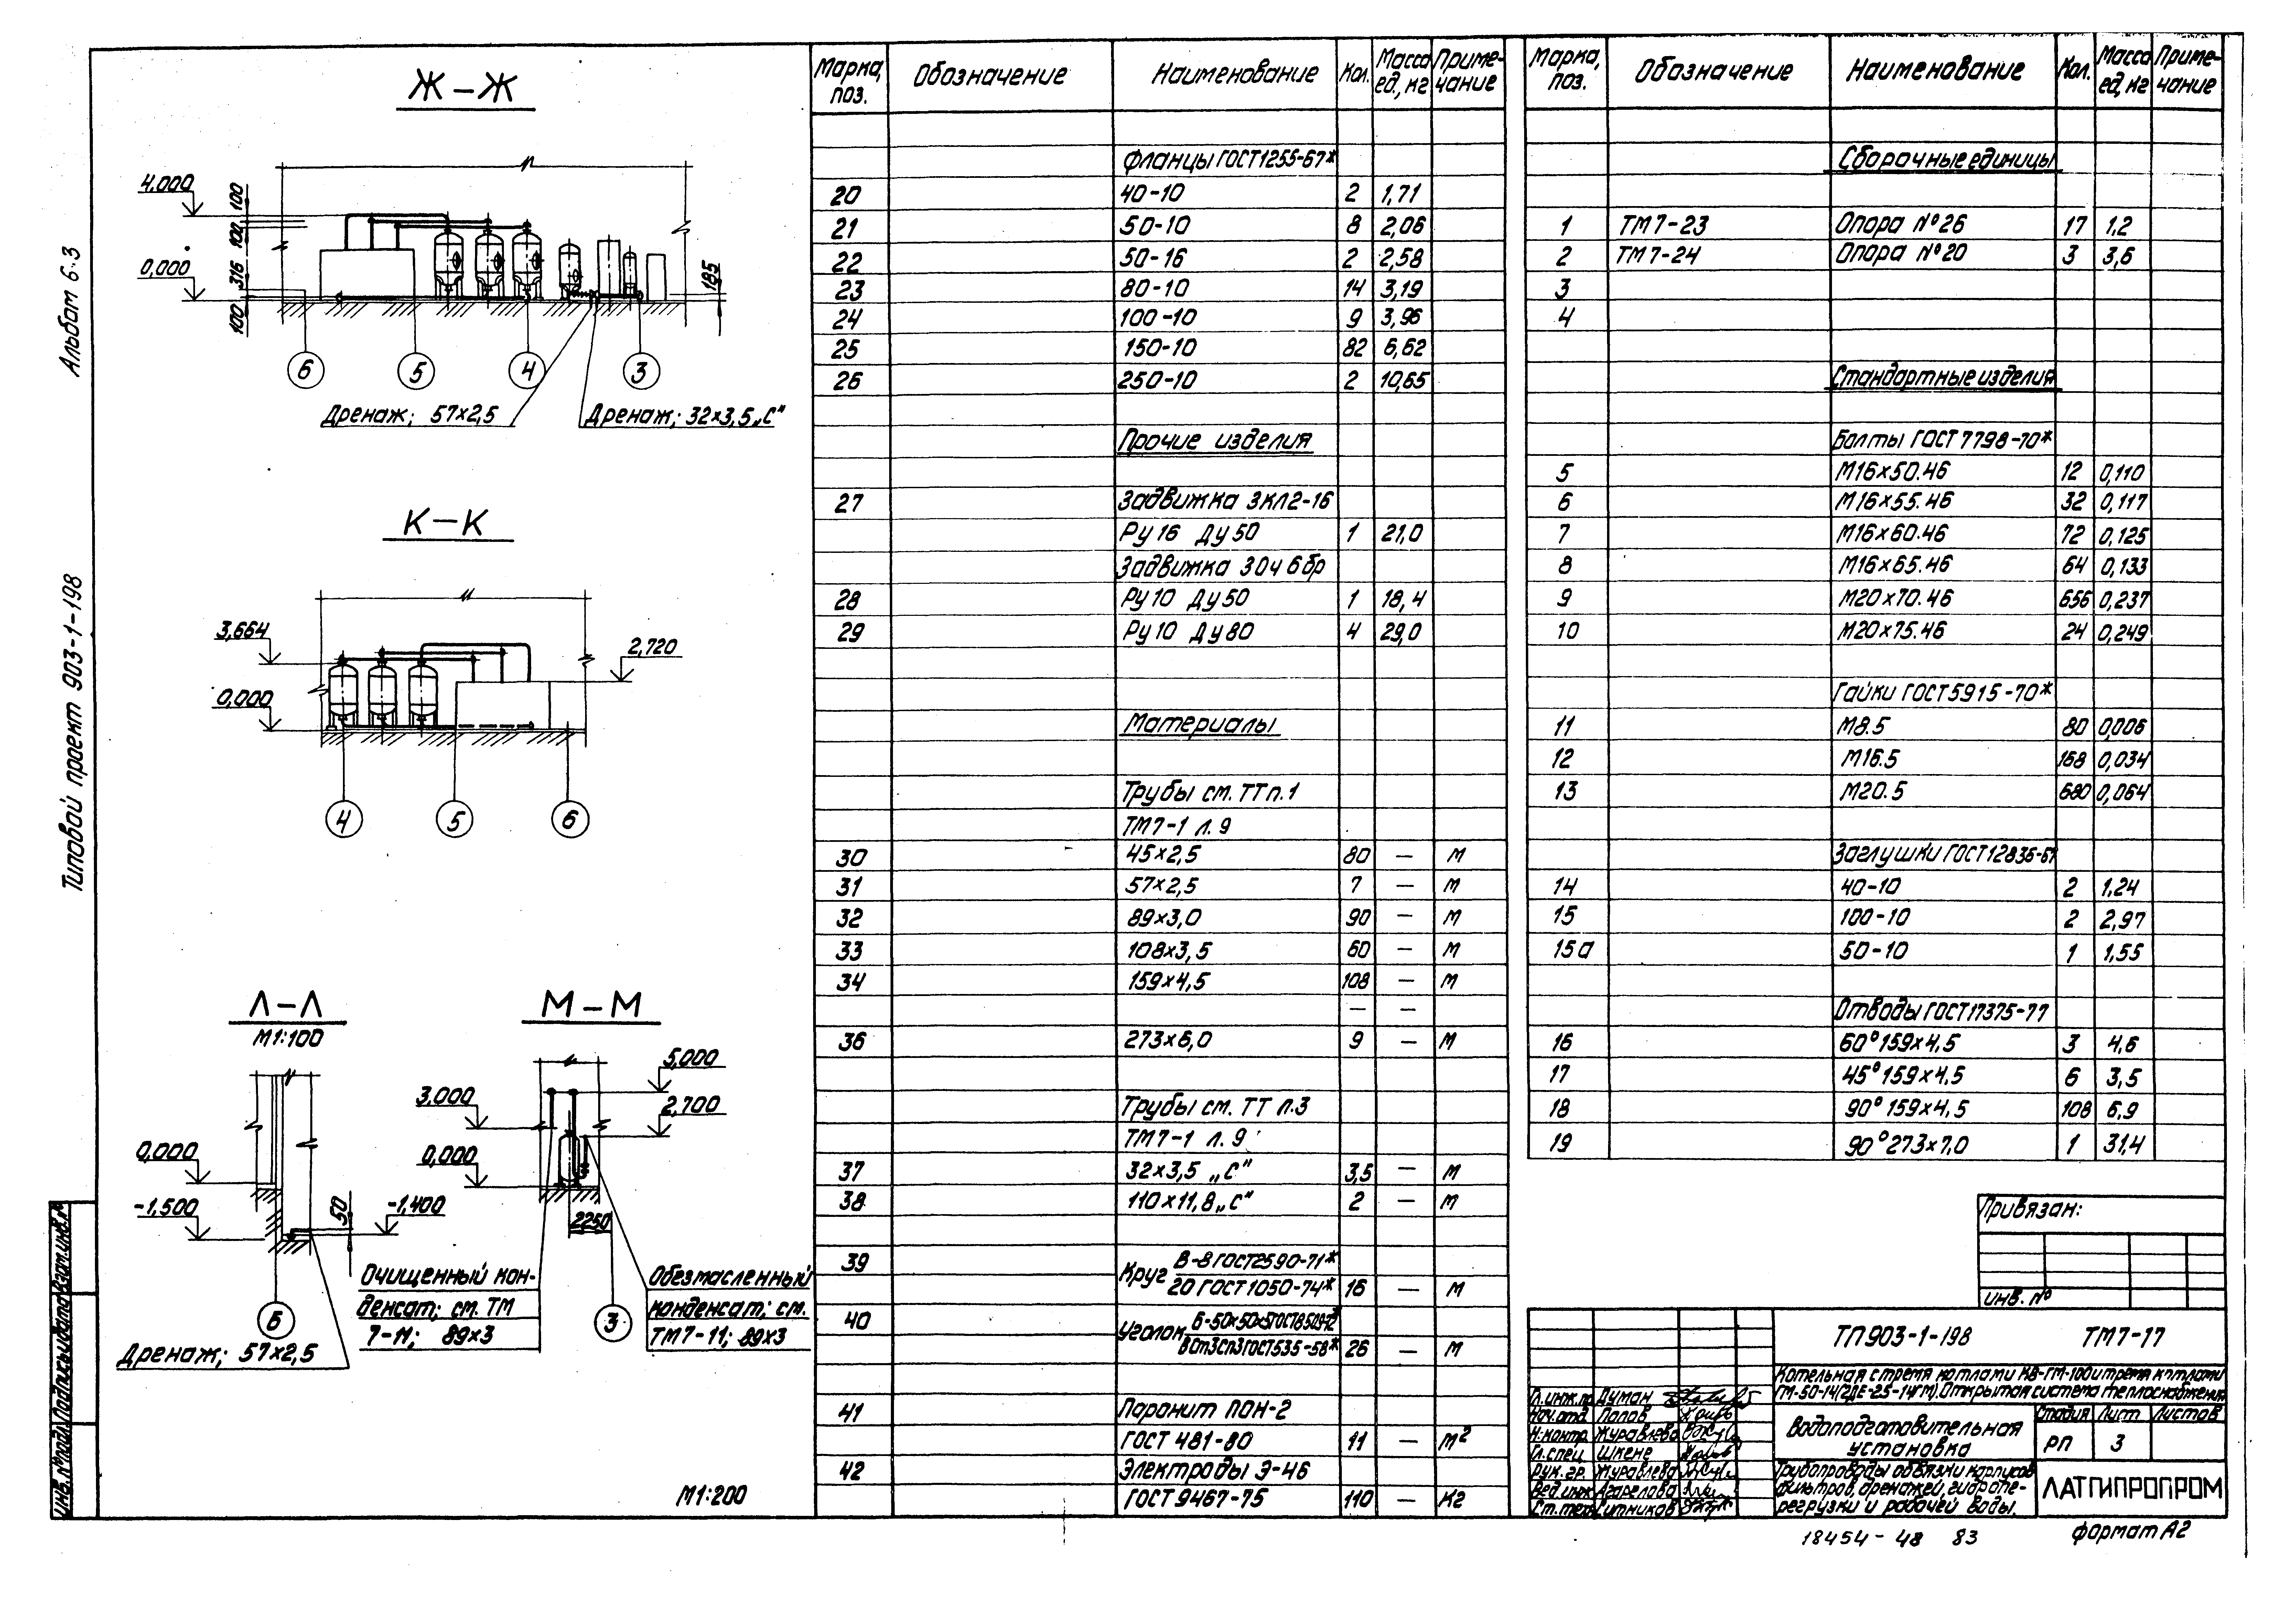 Альбом 6.3
Типовой проект 903-1-198
Ж – Ж
4.000
100
100
0,000
316
100
185
6
5
4
3
Дренаж; 57×2,5
Дренаж; 32×3,5 „С"
К – К
3,664
2,720
0,000
4
5
6
Л – Л
М1:100
0,000
-1,500
50
-1,400
Дренаж; 57×2,5
М – М
5,000
3.000
2,700
0,000
2250
3
Очищенный кон-
денсат; см. ТМ
7-11; 89×3
Обезмасленный
конденсат; см.
ТМ7-11; 89×3
М1:200
Марка, поз. Обозначение Наименование Кол. Масса ед., кг Приме-чание
Фланцы ГОСТ 1255-67*
20 40-10 2 1,71
21 50-10 8 2,06
22 50-16 2 2,58
23 80-10 14 3,19
24 100-10 9 3,96
25 150-10 82 6,62
26 250-10 2 10,65
Прочие изделия
27 Задвижка ЗКЛ2-16
Ру 16 Ду 50 1 21,0
Задвижка 30ч 6бр
28 Ру 10 Ду 50 1 18,4
29 Ру 10 Ду 80 4 29,0
Материалы
Трубы см. ТТ п.1
ТМ7-1 л. 9
30 45×2,5 80 — м
31 57×2,5 7 — м
32 89×3,0 90 — м
33 108×3,5 60 — м
34 159×4,5 108 — м
— —
36 273×6,0 9 — м
Трубы см. ТТ п.3
ТМ7-1 л. 9
37 32×3,5 „С" 3,5 — м
38 110×11,8 „С" 2 — м
39 Круг В-8 ГОСТ 2590-71*
20 ГОСТ 1050-74* 16 — м
40 Уголок Б-50×50×5 ГОСТ 8509-72
ВСт3Сп3 ГОСТ 535-58* 26 — м
41 Паронит ПОН-2
ГОСТ 481-80 11 — м²
42 Электроды Э-46
ГОСТ 9467-75 110 — кг
Марка, поз. Обозначение Наименование Кол. Масса ед, кг Приме-чание
Сборочные единицы
1 ТМ7-23 Опора №26 17 1,2
2 ТМ7-24 Опора №20 3 3,6
3
4
Стандартные изделия
Болты ГОСТ 7798-70*
5 М16×50.46 12 0,110
6 М16×55.46 32 0,117
7 М16×60.46 72 0,125
8 М16×65.46 64 0,133
9 М20×70.46 656 0,237
10 М20×75.46 24 0,249
Гайки ГОСТ 5915-70*
11 М8.5 80 0,006
12 М16.5 168 0,034
13 М20.5 680 0,064
Заглушки ГОСТ 12836-67
14 40-10 2 1,24
15 100-10 2 2,97
15а 50-10 1 1,55
Отводы ГОСТ 17375-77
16 60° 159×4,5 3 4,6
17 45° 159×4,5 6 3,5
18 90° 159×4,5 108 6,9
19 90° 273×7,0 1 31,4
Привязан:
инв. №
ТП 903-1-198 ТМ7-17
Котельная с тремя котлами КВ-ГМ-100 и тремя котлами
ГМ-50-14(2ДЕ-25-14ГМ). Открытая система теплоснабжения
Гл.инж.пр. Думан
Нач.отд. Попов
Н.контр. Журавлева
Гл.спец. Шкене
Рук. гр. Журавлева
Вед.инж. Агарелова
Ст.техн. Ситников
Водоподготовительная
установка
Стадия Лист Листов
РП 3
Трубопроводы обвязки корпусов
фильтров, дренажей, гидропе-
регрузки и рабочей воды.
ЛАТГИПРОПРОМ
Инв. №подл. Подпись и дата Взат.инв.№
18454-48 83
формат А2